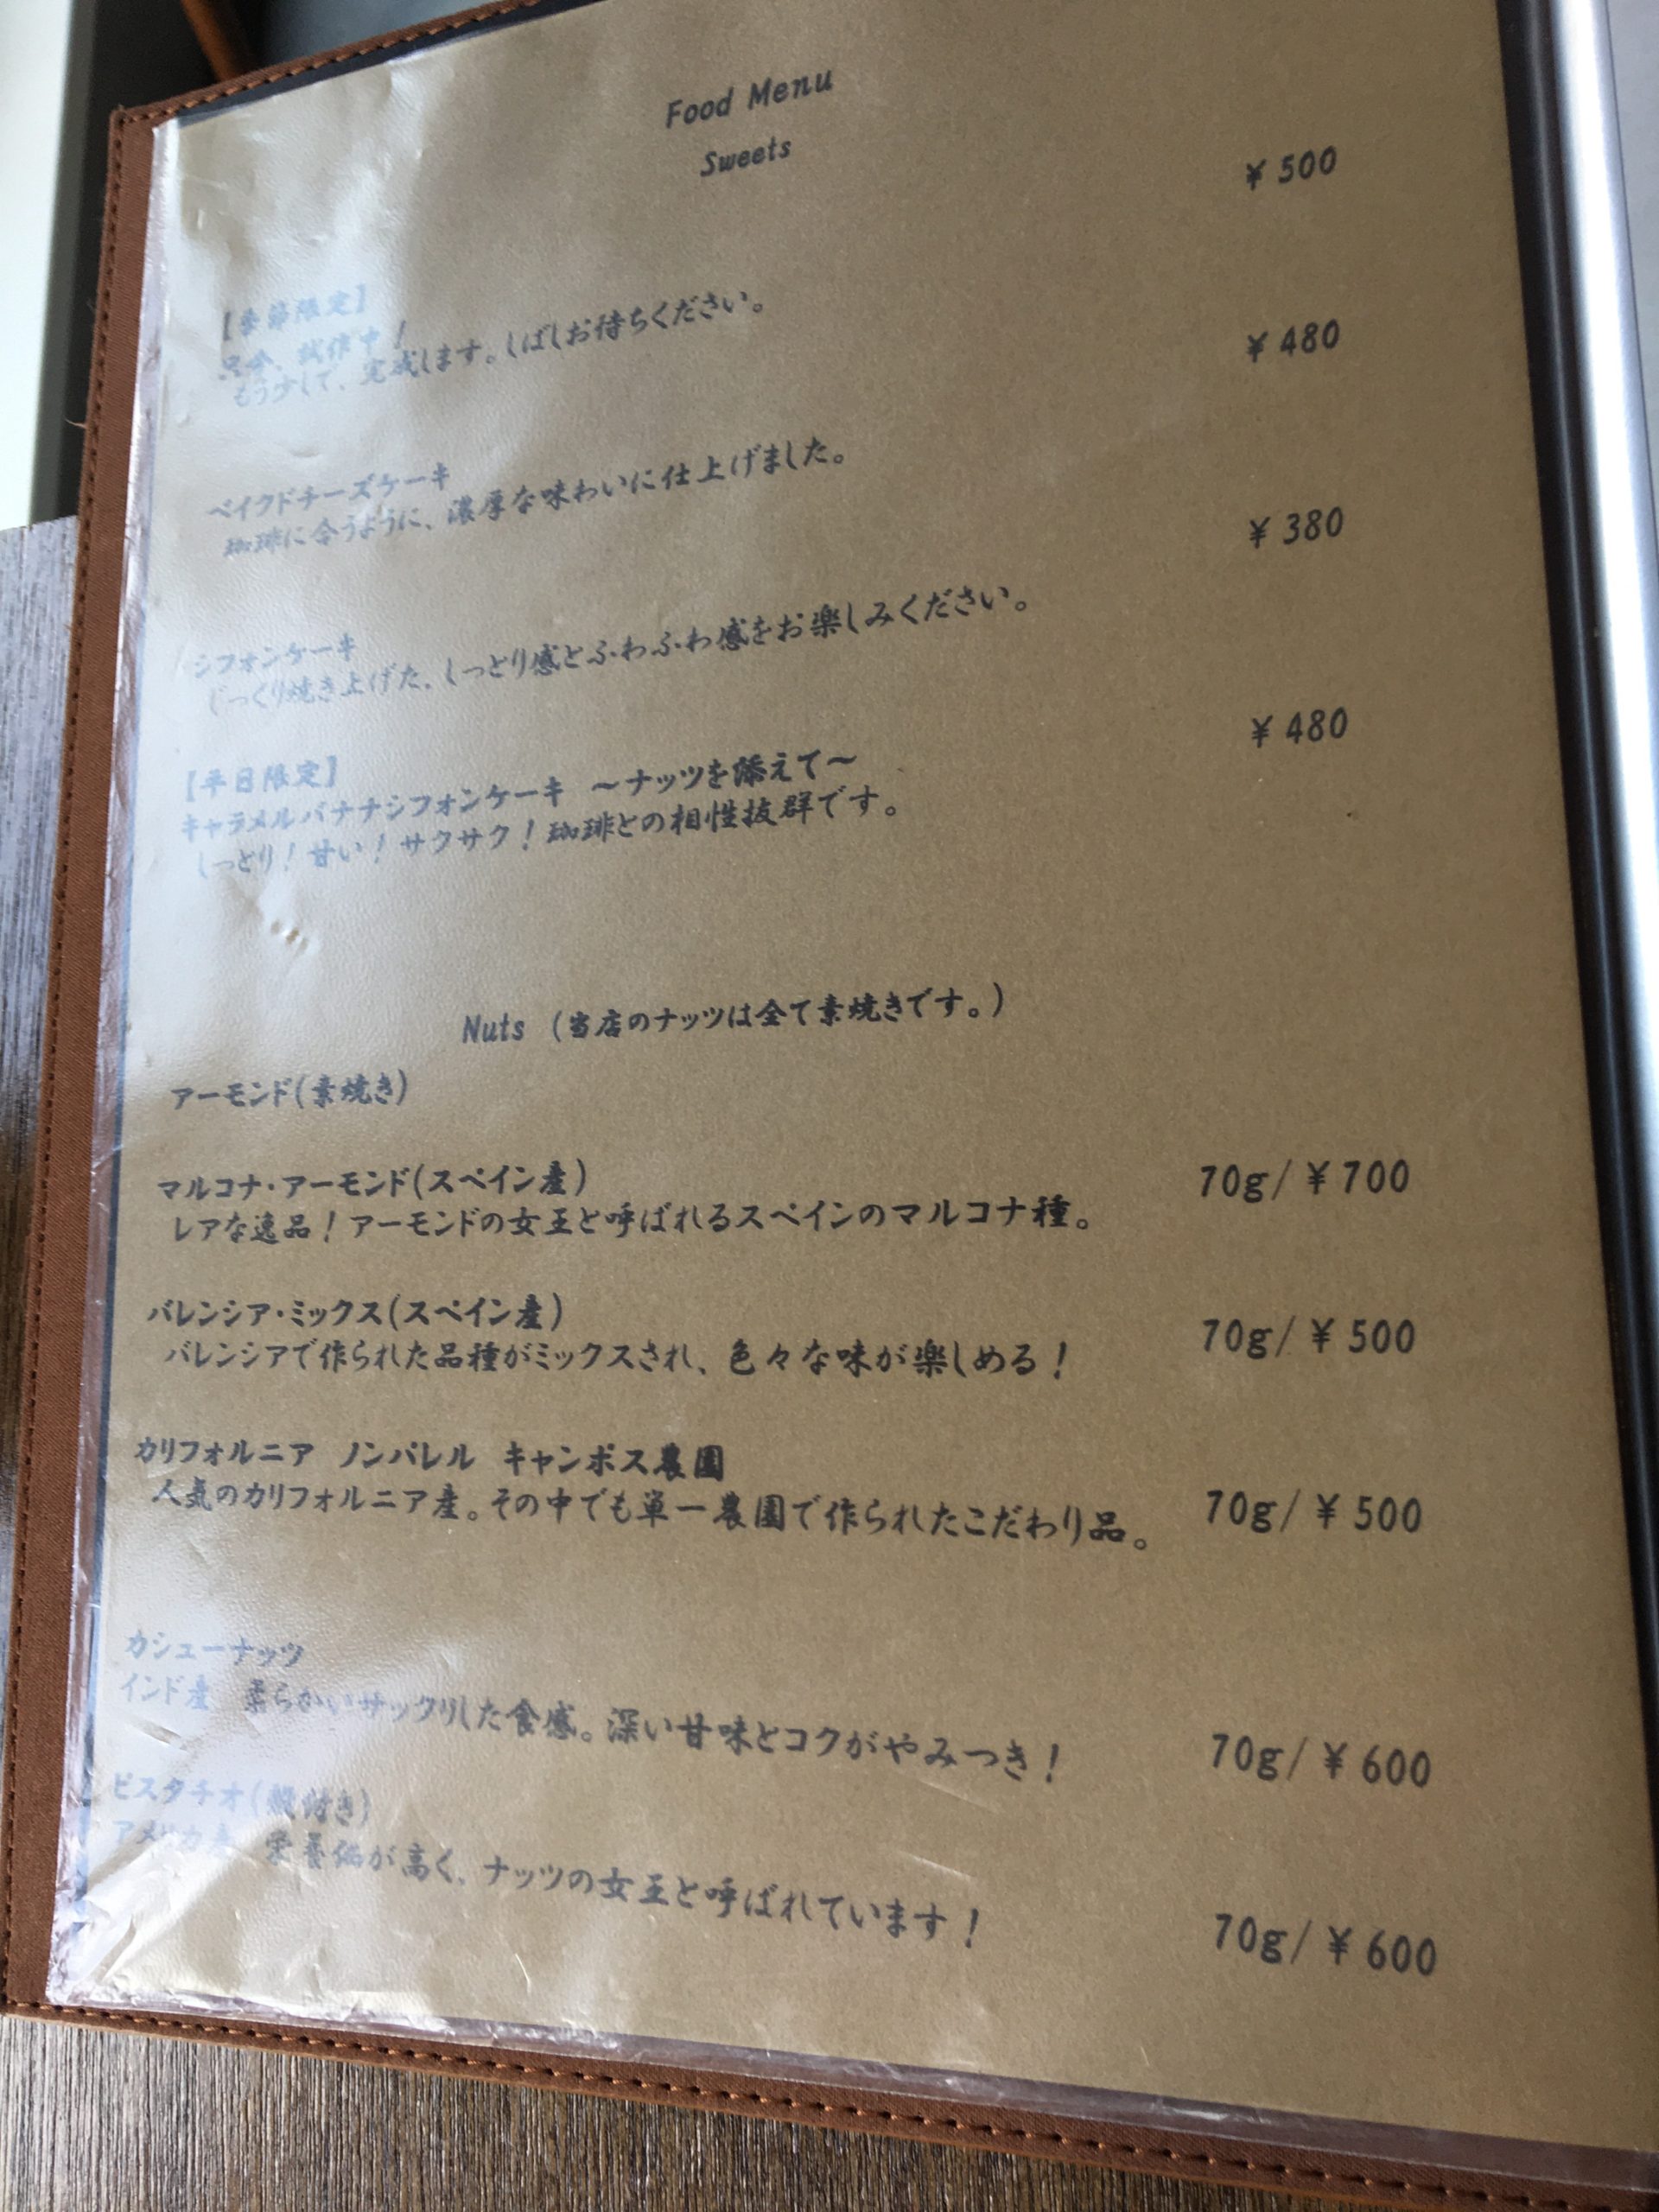 Food Menu
Sweets
【季節限定】 ¥500
只今、試作中!
もう少しで、完成します。しばしお待ちください。
ベイクドチーズケーキ ¥480
珈琲に合うように、濃厚な味わいに仕上げました。
シフォンケーキ ¥380
じっくり焼き上げた、しっとり感とふわふわ感をお楽しみください。
【平日限定】 ¥480
キャラメルバナナシフォンケーキ ～ナッツを添えて～
しっとり!甘い!サクサク!珈琲との相性抜群です。
Nuts (当店のナッツは全て素焼きです。)
アーモンド(素焼き)
マルコナ・アーモンド(スペイン産) 70g/¥700
レアな逸品!アーモンドの女王と呼ばれるスペインのマルコナ種。
バレンシア・ミックス(スペイン産) 70g/¥500
バレンシアで作られた品種がミックスされ、色々な味が楽しめる!
カリフォルニア ノンパレル キャンポス農園
人気のカリフォルニア産。その中でも単一農園で作られたこだわり品。 70g/¥500
カシューナッツ
インド産 柔らかいサックリした食感。深い甘味とコクがやみつき! 70g/¥600
ピスタチオ(殻付き)
アメリカ産 栄養価が高く、ナッツの女王と呼ばれています! 70g/¥600